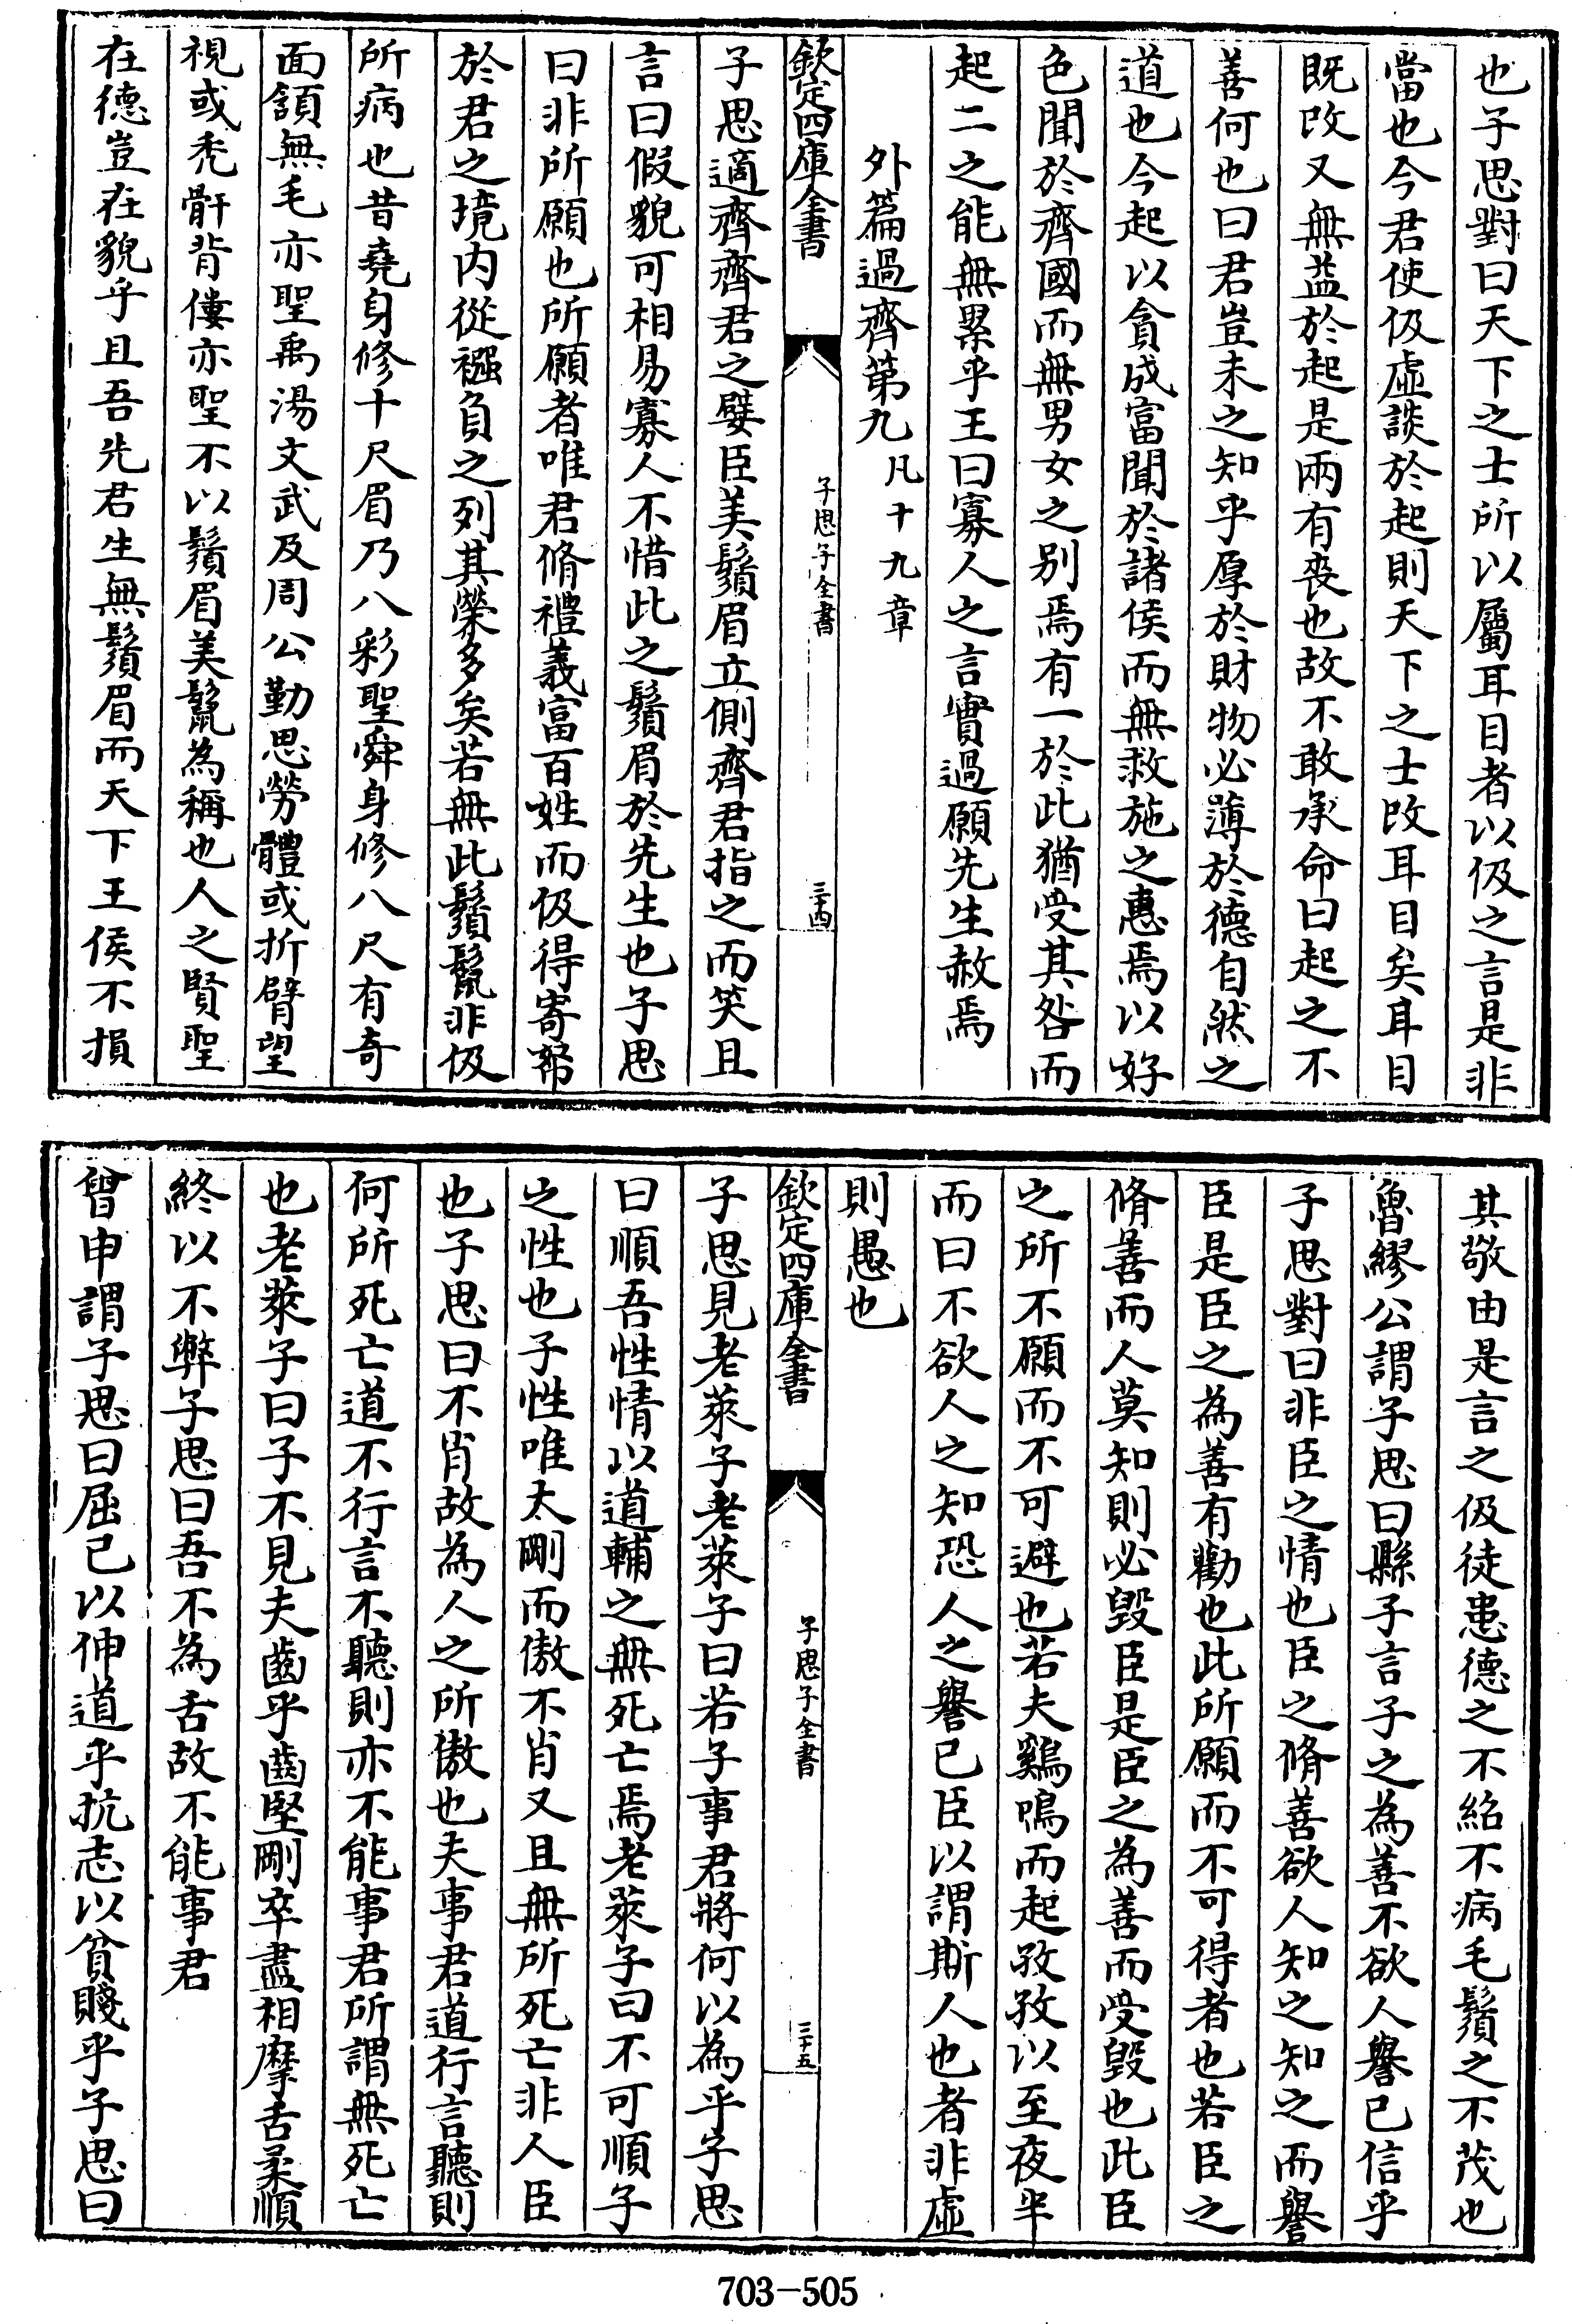 也子思對曰天下之士所以屬耳目者以伋之言是非
當也今君使伋虛談於起則天下之士改耳目矣耳目
既改又無益於起是兩有喪也故不敢承命曰起之不
善何也曰君豈未之知乎厚於財物必薄於德自然之
道也今起以貪成富聞於諸侯而無救施之惠焉以好
色聞於齊國而無男女之別焉有一於此猶受其咎而
起二之能無累乎王曰寡人之言實過願先生赦焉
外篇過齊第九凡十九章
欽定四庫全書
子思子全書
三十四
子思適齊齊君之嬖臣美鬚眉立側齊君指之而笑且
言曰假貌可相易寡人不惜此之鬚眉於先生也子思
曰非所願也所願者唯君脩禮義富百姓而伋得寄帑
於君之境内從襁負之列其榮多矣若無此鬚鬣非伋
所病也昔堯身修十尺眉乃八彩聖舜身修八尺有奇
面頷無毛亦聖禹湯文武及周公勤思勞體或折臂望
視或禿骭背僂亦聖不以鬚眉美鬣為稱也人之賢聖
在德豈在貌乎且吾先君生無鬚眉而天下王侯不損
其敬由是言之伋徒患德之不紹不病毛鬚之不茂也
魯繆公謂子思曰縣子言子之為善不欲人譽己信乎
子思對曰非臣之情也臣之脩善欲人知之知之而譽
臣是臣之為善有勸也此所願而不可得者也若臣之
脩善而人莫知則必毀臣是臣之為善而受毀也此臣
之所不願而不可避也若夫鷄鳴而起孜孜以至夜半
而曰不欲人之知恐人之譽己臣以謂斯人也者非虛
則愚也
欽定四庫全書
子思子全書
三十五
子思見老萊子老萊子曰若子事君將何以為乎子思
曰順吾性情以道輔之無死亡焉老萊子曰不可順子
之性也子性唯太剛而傲不肖又且無所死亡非人臣
也子思曰不肖故為人之所傲也夫事君道行言聽則
何所死亡道不行言不聽則亦不能事君所謂無死亡
也老萊子曰子不見夫齒乎齒堅剛卒盡相摩舌柔順
終以不弊子思曰吾不為舌故不能事君
曾申謂子思曰屈己以伸道乎抗志以貧賤乎子思曰
703-505